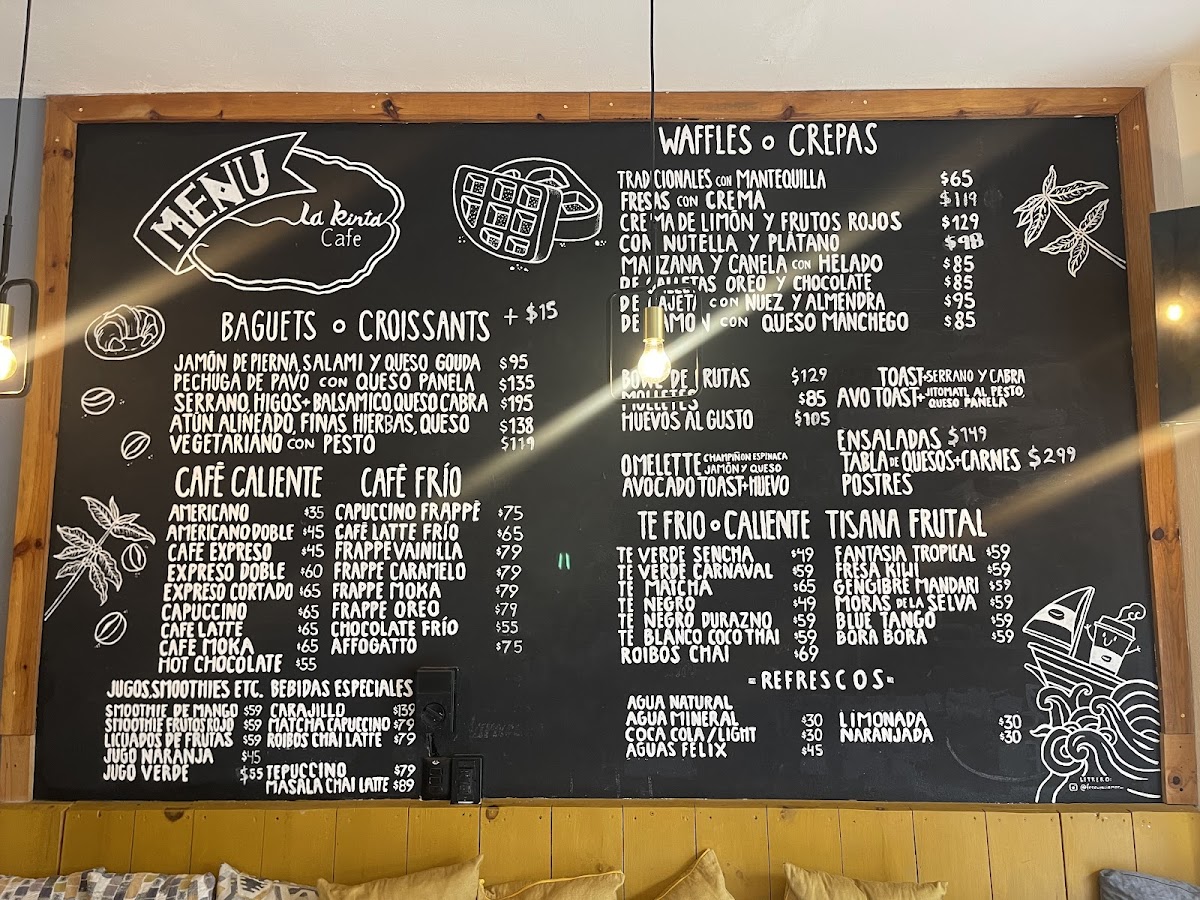 MENU
La Kinta
Cafe
BAGUETS o CROISSANTS + $15
JAMÓN DE PIERNA, SALAMI Y QUESO GOUDA $95
PECHUGA DE PAVO CON QUESO PANELA $135
SERRANO, HIGOS + BALSAMICO, QUESO CABRA $195
ATÚN ALINEADO, FINAS HIERBAS, QUESO $138
VEGETARIANO CON PESTO $119
CAFÉ CALIENTE
AMERICANO $35
AMERICANO DOBLE $45
CAFÉ EXPRESO $45
EXPRESO DOBLE $60
EXPRESO CORTADO $65
CAPUCCINO $65
CAFE LATTE $65
CAFE MOKA $65
HOT CHOCOLATE $55
CAFÉ FRÍO
CAPUCCINO FRAPPÉ $75
CAFÉ LATTE FRÍO $65
FRAPPE VAINILLA $79
FRAPPE CARAMELO $79
FRAPPE MOKA $79
FRAPPE OREO $79
CHOCOLATE FRÍO $55
AFFOGATTO $75
JUGOS, SMOOTHIES ETC.
SMOOTHIE DE MANGO $59
SMOOTHIE FRUTOS ROJO $59
LICUADOS DE FRUTAS $59
JUGO NARANJA $45
JUGO VERDE $55
BEBIDAS ESPECIALES
CARAJILLO $139
MATCHA CAPUCCINO $79
ROIBOS CHAI LATTE $79
TEPUCCINO $79
MASALA CHAI LATTE $89
WAFFLES o CREPAS
TRADICIONALES CON MANTEQUILLA $65
FRESAS CON CREMA $119
CREMA DE LIMÓN Y FRUTOS ROJOS $129
CON NUTELLA Y PLÁTANO $98
MANZANA Y CANELA CON HELADO $85
DE GALLETAS OREO Y CHOCOLATE $85
DE CAJETA CON NUEZ Y ALMENDRA $95
DE JAMON CON QUESO MANCHEGO $85
BOWL DE FRUTAS $129
MOLLETES $85
HUEVOS AL GUSTO $105
OMELETTE CHAMPIÑON ESPINACA
JAMÓN Y QUESO
AVOCADO TOAST + HUEVO
TOAST + SERRANO Y CABRA
AVO TOAST + JITOMATL AL PESTO,
QUESO PANELA
ENSALADAS $149
TABLA DE QUESOS + CARNES $299
POSTRES
TE FRIO o CALIENTE
TE VERDE SENCHA $49
TE VERDE CARNAVAL $59
TE MATCHA $65
TE NEGRO $49
TE NEGRO DURAZNO $59
TE BLANCO COCO THAI $59
ROIBOS CHAI $69
TISANA FRUTAL
FANTASIA TROPICAL $59
FRESA KIWI $59
GENGIBRE MANDARI $59
MORAS DE LA SELVA $59
BLUE TANGO $59
BORA BORA $59
= REFRESCOS =
AGUA NATURAL
AGUA MINERAL $30
COCA COLA/LIGHT $30
AGUAS FELIX $45
LIMONADA $30
NARANJADA $30
LETRERO: